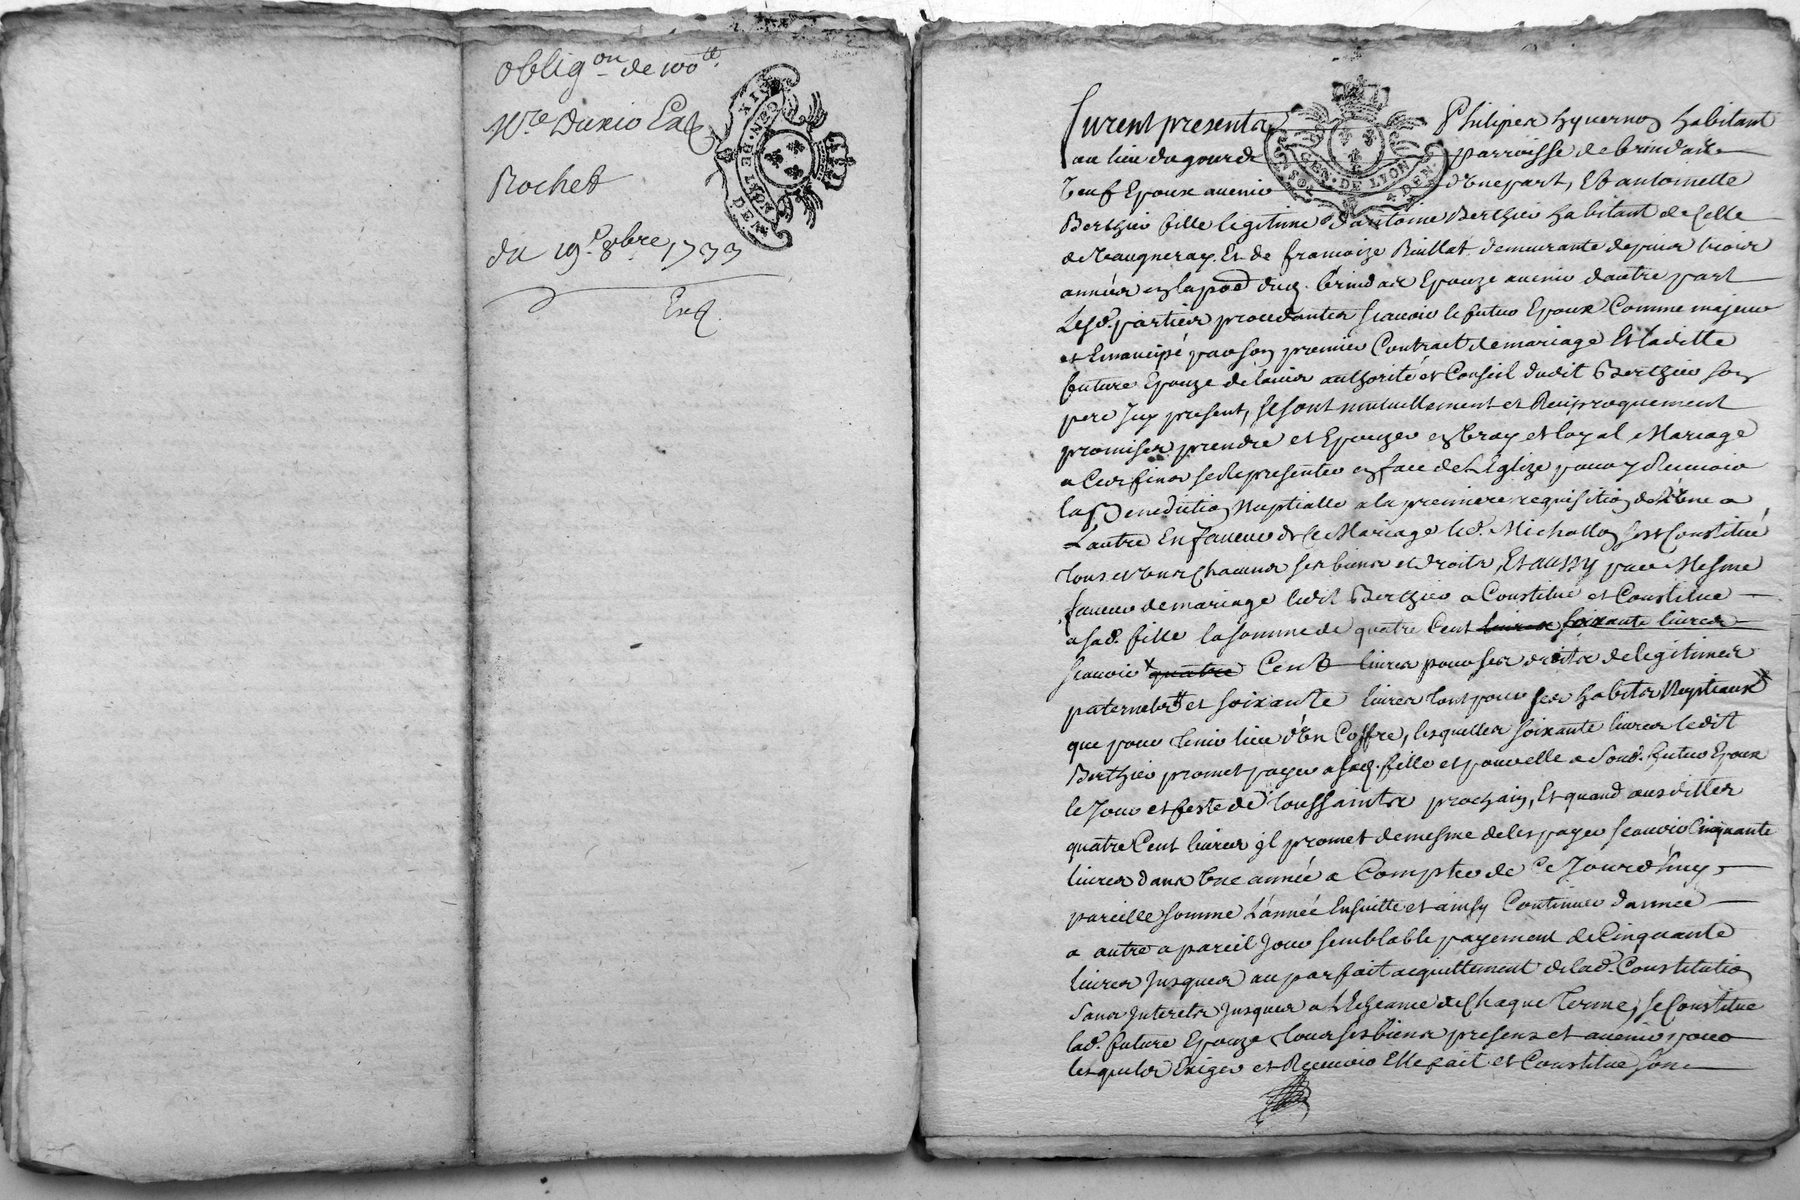 Obligon de 100tt
Rochet
du 19e 8bre 1733
Enq.
GEN. DE LYON
Furent presents Philiper hyvernoz habitant
au lieu du gourd parroisse de brindas
veuf Epoux avenir d'Une part, Et antoinette
Berthier fille legitime d'antoine Berthier habitant de Celle
de Vaugneray Et de francoize Buillat demeurante depuis trois
années en la pad. duq. brindas Epouze avenir dautre part
Lesd. parties procedantes scavoir le futur Epoux Comme majeur
et Emancipé par son premier Contract de mariage Et laditte
future Epouze de lavis authorité et Conseil dudit Berthier son
pere Icy present, Se sont mutuellement et Reciproquement
promises prendre et Epouzer en Vray et loyal Mariage
a Ces fins se Representer en face de L'Eglize pour y Recevoir
la Benediction Nuptialle a la premiere requisition de l'Une a
L'autre En faveur de Ce Mariage led. s'est Constitué
tous et Uns Chacuns ses biens et droits, Et aussy par Mesme
faveur de mariage ledit Berthier a Constitué et Constitue
a sad. fille la somme de quatre Cent livres soixante livres
scavoir quattre Cent livres pour ses droits de legitimes
paternels et soixante livres tant pour ses habits Nuptiaux
que pour tenir lieu d'Un Coffre, lesquelles soixante livres ledit
Berthier promet payer a sad. fille et pour elle a Sond. futur Epoux
le Jour et feste de toussaints prochain, Et quand aus dittes
quatre Cent livres il promet de mesme de les payer scavoir Cinquante
livres dans Une année a Compter de Ce Jourd'huy
pareille somme L'année Ensuitte et ainsy Continuer d'année
a autre a pareil Jour semblable payement de Cinquante
livres Jusques au parfait acquittement de lad. Constitution
Sans Interets Jusques a L'Echeance de Chaque terme, se Constitue
lad. future Epouze tous ses biens presens et avenir pour
lesquels Exiger et Recevoir Elle fait et Constitue Son